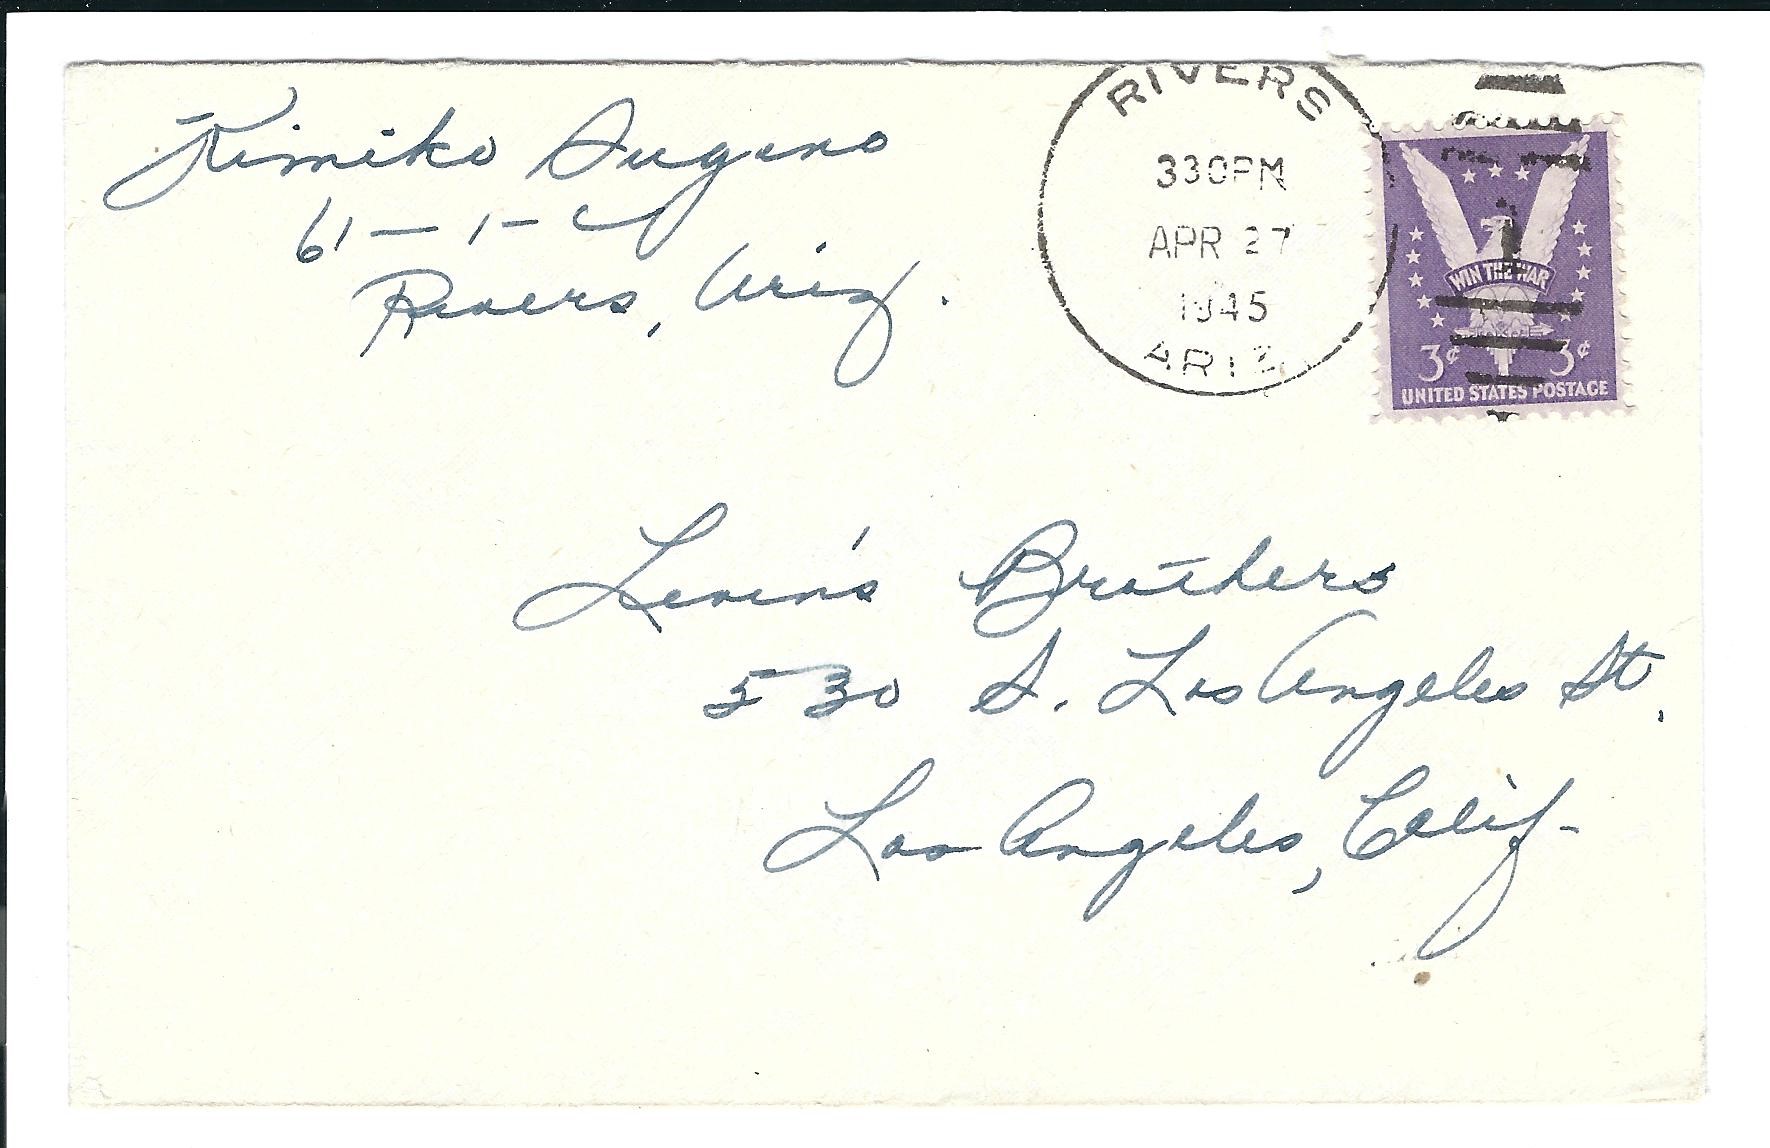 Kimiko Sugeno
61-1-C
Rivers, Ariz.
RIVERS
330PM
APR 27
1945
ARIZ
WIN THE WAR
3¢ 3¢
UNITED STATES POSTAGE
Levin's Brothers
530 S. Los Angeles St.
Los Angeles, Calif-